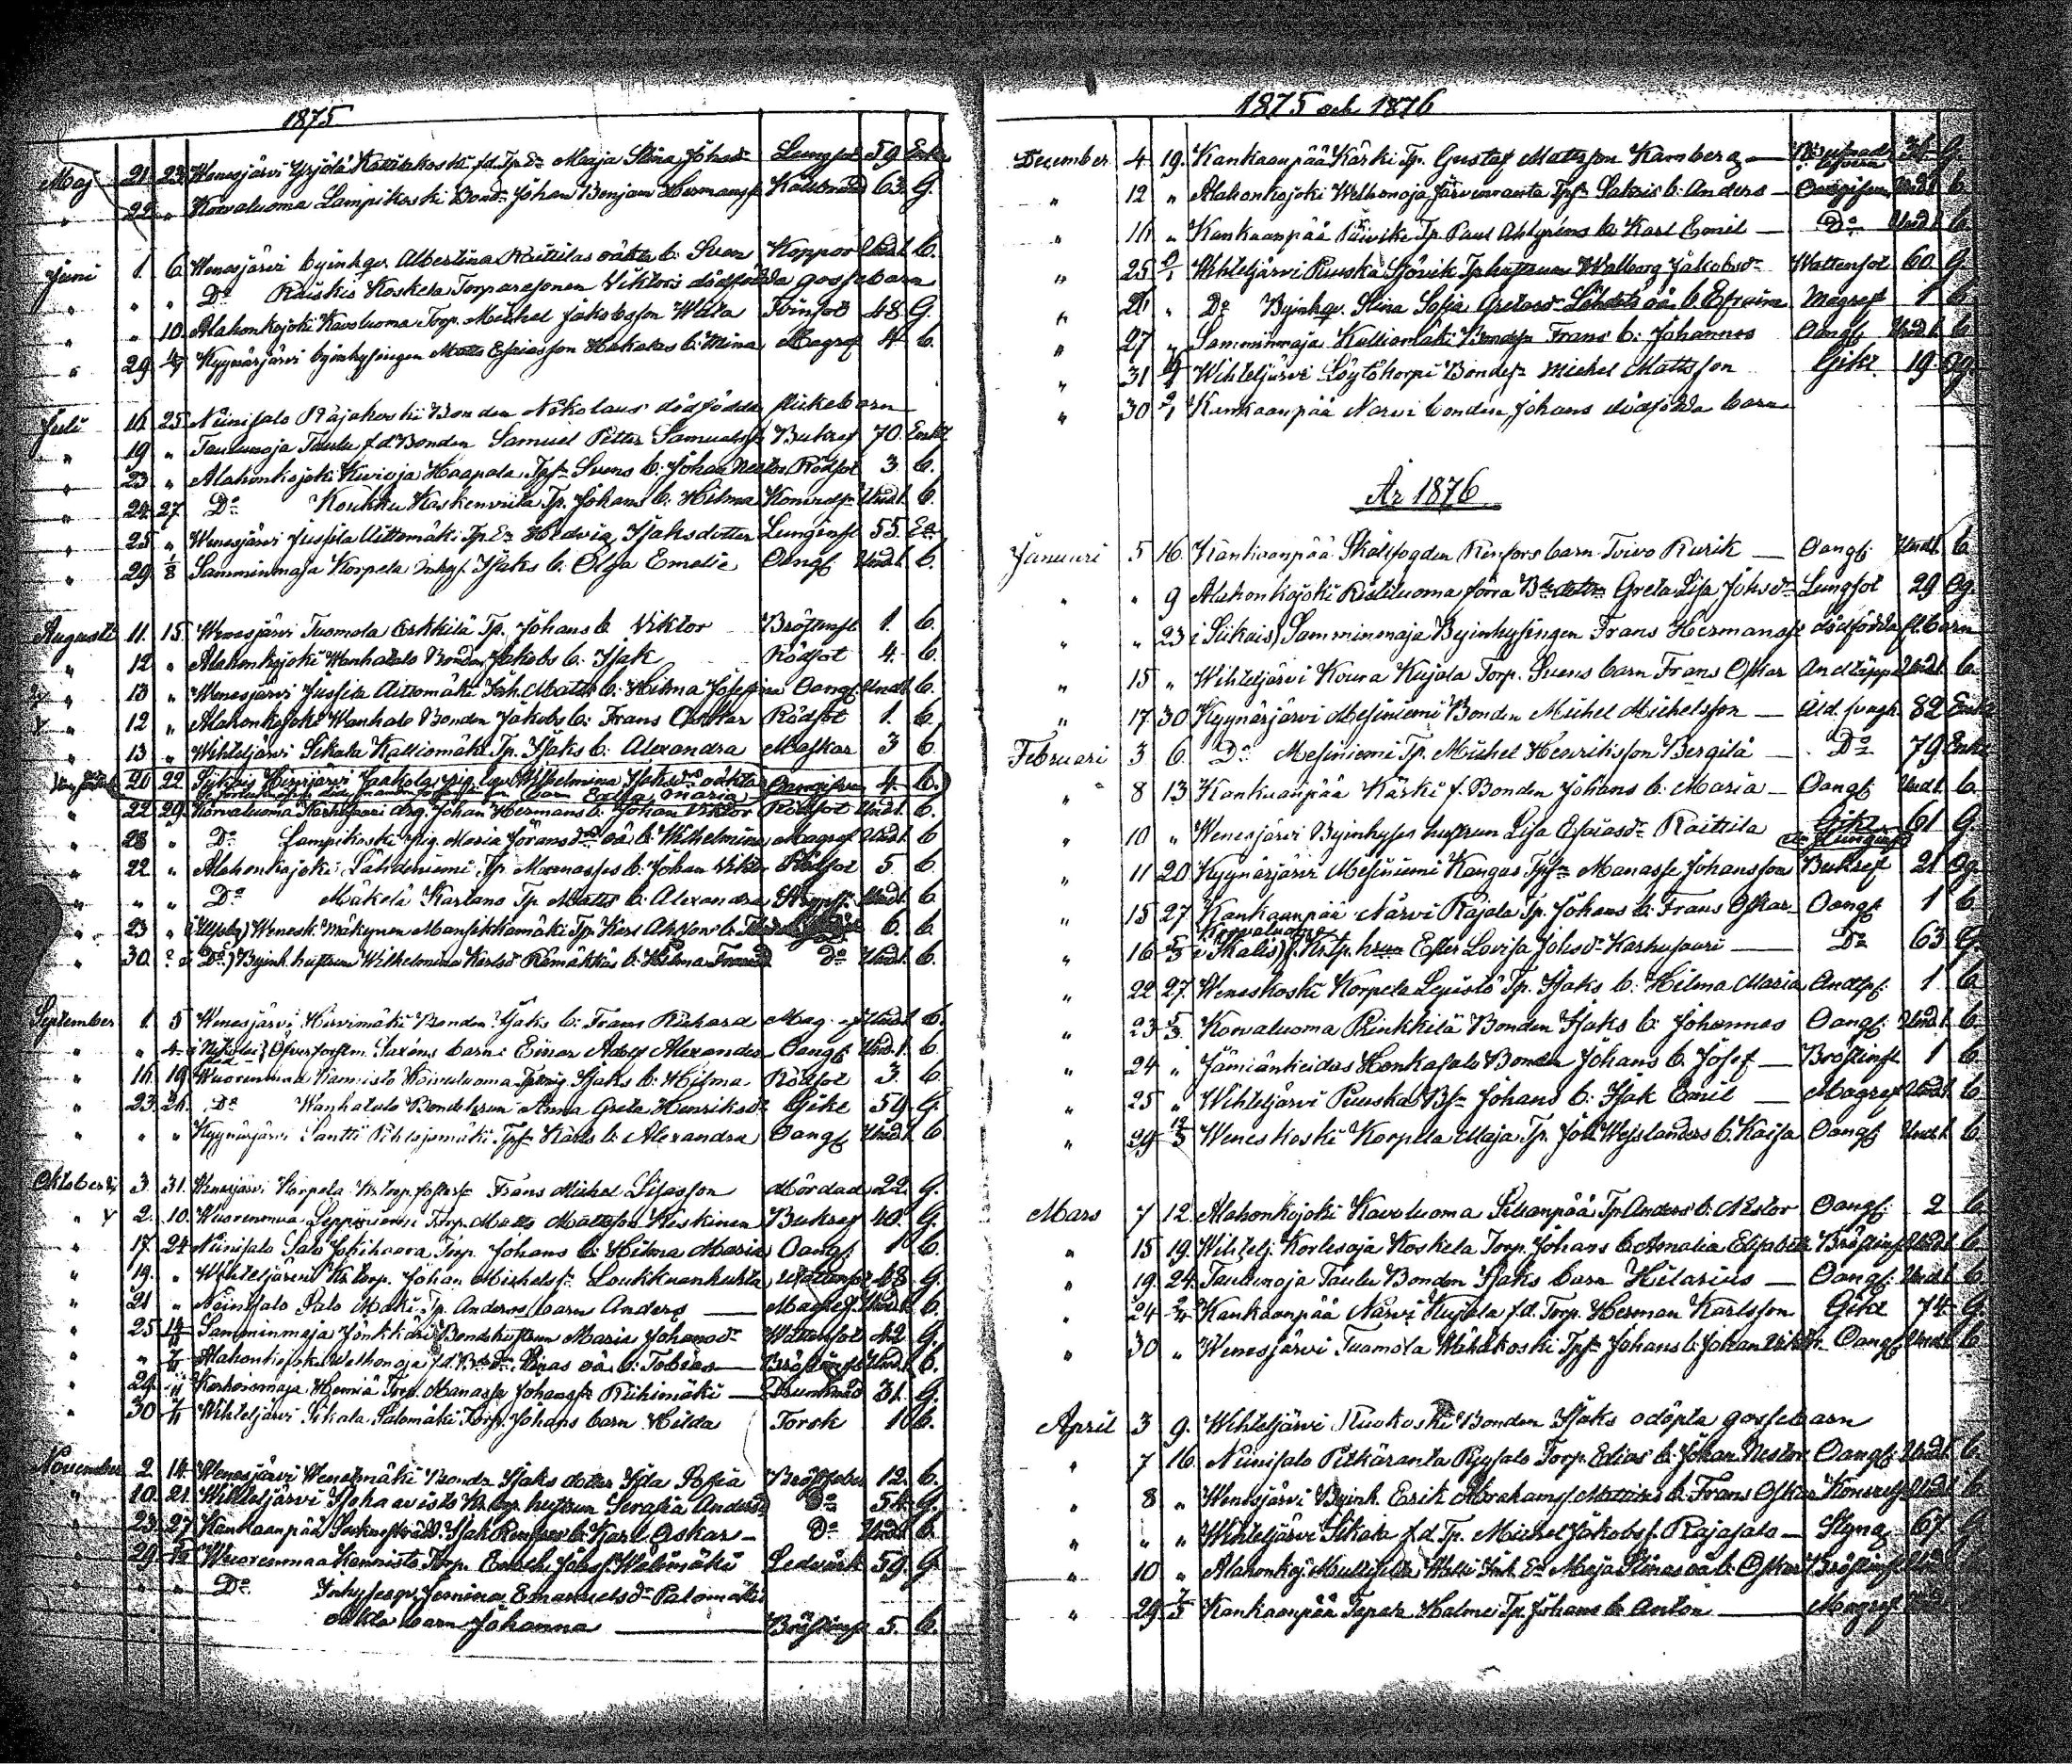 1875
Maj 21. 23. Wenesjärvi Yrjölä Kattilakoski f.d. Tp. Maaja Stina Johsdr Lungsot 59 Enka
" 22 " Korvaluoma Lampikoski Bond. Johan Benjam Hermansf. Kallbrand 63. G.
Juni 1. 6. Wenesjärvi byinhgn Albertina Raittilas oäkta b: Sven Koppor Und.1. b.
" " " Do Raiskis Koskela Torparesonen Viktors dödfödda gossebarn
" " 10. Alahonkojoki Kavoluoma Torp. Michel Jakobsson 48. G.
" 29 4/7 Kyynärjärvi byinhysingen Matts Esaiasson Hakalas b: Mina Magref 4 b.
Juli 16 25 Niinisalo Rajakoski Bonden Nikolaus dödfödda flickebarn
" 19 " Taulunoja Taulu f.d. Bonden Samuel Petter Samuelsf. Bukref 70. Enkl.
" 23 " Alahonkojoki Kivioja Haapala Tpf. Svens b: Johan Nestor Rödsot 3. b.
" 24. 27 Do Koukku Kaskenviita Tp. Johans b: Hilma Und.1. b.
" 25 " Wenesjärvi Jussila Uittomäki Tp. Ea Hedvig Isaksdotter Lunginfl 55. Ea
" 29. 1/8 Samminmaja Korpela Inhys. Isaks b: Olga Emelie Oangf. Und.1. b.
Augusti 11. 15. Wenesjärvi Tuomola Erkkilä Tp. Johans b Viktor Bröstinfl 1. b.
" 12 " Alahonkojoki Wanhatalo Bonden Jakobs b: Isak Rödsot 4. b.
" 13 " Wenesjärvi Jussila Aittomäki Inh. Matts b: Hilma Josefina Oangf. Und.1. b.
" 12 " Alahonkojoki Wanhalo Bonden Jakobs b: Frans Oskar Rödsot 1. b.
" 13 " Wihteljärvi Sikala Kalliomäki Tp. Isaks b: Alexandra Maskar 3 b.
20 22 Siikais Hirvijärvi Jaakola pig. Wilhelmina Isaksdrs oäkta barn Erika Maria Oangifven 4. b.
" 22 29. Korvaluoma Karhusaari drg. Johan Hermans b: Johan Viktor Rödsot Und.1. b.
" 28 " Do Lampikoski pig. Maria Göransdrs oä b: Wilhelmina Magref Und.1. b
" 22 " Alahonkojoki Lähdeniemi Tp. Manasses b: Johan Viktor Rödsot 5. b.
" " " Do Mäkelä Kartano Tp Matts b: Alexandra Und.1. b.
" 23 " Wenesk. Mäkynen Mansikkamäki Tp. 6. b.
" 30. ? Do) Byinh. hustrun Wilhelmina Karlsdr Rämäkkäs b: Hilma Do Und.1. b.
September 1. 5 Wenesjärvi Hirvimäki Bonden Isaks b: Frans Richard Mag. ref Und.1. b.
" " 4 Öfverforstm. Saxéns barn Einar Adolf Alexander Oangf. Und.1. b.
" 16. 19 Wuorenmaa Kannisto Koivuluoma Isaks b: Hilma Rödsot 3. b.
" 23. 26. Do Wanhatalo Bondehrun Anna Greta Henriksdr Gikt 59. G.
" " " Kyynärjärvi Santti Pihlajamäki Tpf. Karls b: Alexandra Oangf. Und.1. b.
Oktober 3. 31. Wenesjärvi Korpela Frans Michel Lisasson Mördad 22. G.
" 2. 10. Wuorenmaa Leppiniemi Torp. Matts Mattsson Koskinen Bukref 40. G.
" 17. 24 Niinisalo Salo Jokihaara Torp. Johans b: Hilma Maria Oangf. 1 b.
" 19. " Wihteljärvi Kr. torp. Johan Michelsf. Loukkuankulta Wattensot 68. G.
" 21 " Niinisalo Palo Mäki Tp. Anders barn Anders — Magref Und.1. b.
" 25 14/11 Samminmaja Jönkkäri Bondehustrun Maria Johansdr Wattensot 42. G.
" " 7/11 Alahonkojoki Welhonoja oä b: Tobias — Bröstinfl Und.1. b.
" 29 Korhoismaja Hemiä Torp. Manasse Johansf. Riihimäki — 31. G.
" 30 7/11 Wihteljärvi Sikala Salomäki Torp. Johans barn Hilda Torsk 1 b.
November 2. 14. Wenesjärvi Wenetmäki Bonde Isaks dotter Ida Sofia Bröstfeber 12. b.
" 10. 21. Wihteljärvi hustrun Serafia Andersdr Do 54. G.
" 23. 27 Kankaanpää b: Karl Oskar — Do Und.1. b.
" 29. 5/12 Wuorenmaa Kannisto Torp. Enoch Johsf. Wälimäki Ledvärk 59. G.
" " " Do Inhysesqv. Jemina Emanuelsdr Palomäki
oäkta barn Johanna — Bröstinfl 5. b.
1875 och 1876
December 4 19. Kankaanpää Kärki Tp. Gustaf Mattsson Kamberg — 36. G.
" 12 " Alahonkojoki Welhonoja Järvenranta Tpf. Sakris b: Anders — Oangifven Und.1. b.
" 16 " Kankaanpää Päivike Tp Paul Ahlgrens b: Karl Emil — Do Und.1. b.
" 25 2/1 Wihteljärvi Puuska Sjövik Tp hustrun Walborg Jakobsdr Wattensot 60 G.
" 26 " Do Byinhqv. Stina Sofia Gretasdr Lähdetä oä b: Efraim Magref 1 b.
" 27 " Samminmaja Kalliomäki Bondef. Frans b: Johannes Oangf. Und.1. b.
" 31 6/1 Wihteljärvi Löytökorpi Bondef. Michel Mattsson Gikt. 19. Og.
" 30 2/1 Kankaanpää Narvi bonden Johans dödfödda barn
År 1876
Januari 5 16. Kankaanpää Skallfogden Renfors barn Toivo Rurik — Oangf. Und.1. b.
" " 9 Alahonkojoki Ristiluoma förra Greta Lisa Johsdr Lungsot 29 Og.
" " 23 i Siikais) Samminmaja Byinhysingen Frans Hermansf. dödfödda fl. barn
" 15 " Wihteljärvi Koura Kujala Torp. Svens barn Frans Oskar Andtäppa Und.1. b.
" 17 30 Kyynärjärvi Mesiniemi Bonden Michel Michelsson — Åld. svagh. 82 Enkl.
Februari 3 6. Do Mesiniemi Tp. Michel Henriksson Bergilä — Do 79 Enkl.
" 8 13 Kankaanpää Kärki f. Bonden Johans b: Maria — Oangf. Und.1. b.
" 10 " Wenesjärvi Byinhyses hustrun Lisa Esaiasdr Raittila Gikt 61 G.
" 11 20 Kyynärjärvi Mesiniemi Kangas Tpf. Manasse Johansson Bukref 21 Og.
" 15 27 Kankaanpää Närvi Rajala Tp. Johans b: Frans Oskar Oangf. 1 b.
" 16 5/3 Korvaluoma i Ikalis) f. Kr. tp. hrun Ester Lovisa Johsdr Karhusaari — Do 63 G.
" 22 27. Weneskoski Korpela Lepistö Tp. Isaks b: Hilma Maria Andtp. 1 b.
" 23 5/3. Korvaluoma Rinkkilä Bonden Isaks b: Johannes Oangf. Und.1. b.
" 24 " Jämiänkeidas Honkasalo Bonden Johans b: Josef — Bröstinfl 1 b.
" 25 " Wihteljärvi Puuska Bf. Johans b: Isak Emil — Magref Und.1. b.
" 29 12/3 Weneskoski Korpela Maja Tp. Joh Wesslanders b. Kaisa Oangf Und.1. b.
Mars 7 12. Alahonkojoki Kavoluoma Sillanpää Tp Anders b: Nestor Oangf. 2 b.
" 15 19. Wihtelj. Korlesoja Koskela Torp. Johans b: Amalia Elisabeth Bröstinfl Und.1. b.
" 19. 24. Taulunoja Taulu Bonden Isaks barn Hilarius — Oangf. Und.1. b.
" 24 2/4 Kankaanpää Närvi Kujala f.d. Torp. Herman Karlsson Gikt 74. G.
" 30 " Wenesjärvi Tuomola Tpf. Johans b: Johan Viktor. Oangf. Und.1. b.
April 3 9. Wihteljärvi Ruokoski Bonden Isaks odöpta gossebarn
" 7 16. Niinisalo Pitkäranta Pyysalo Torp. Edias b: Johan Nestor Oangf. Und.1. b.
" 8 " Wenesjärvi Byinh. Erik Abrahamsf. b: Frans Oskar Und.1. b.
" " " Wihteljärvi Sikala f.d. Tp. Michel Jakobsf. Rajasalo — Styng 67 G
" 10 " Alahonkoj. Maja Stinas oä b: Oskar Bröstinfl Und.
" 29 7/5 Kankaanpää Tapala Halme Tp. Johans b: Anton — Magref Und.